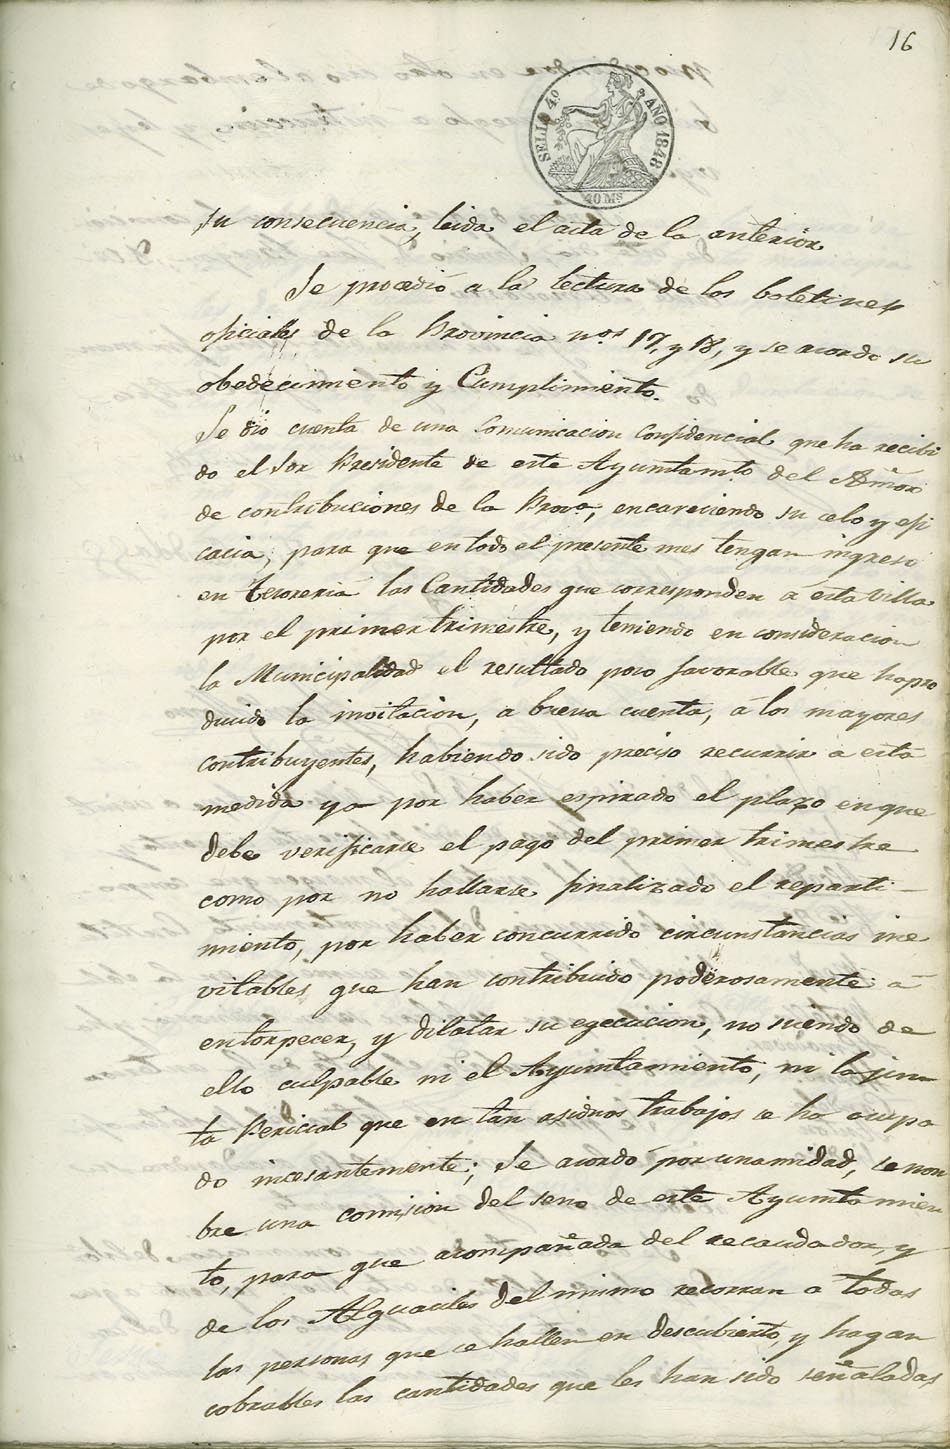 16
SELLO 4º AÑO 1848
40 Ms
su consecuencia, leida el acta de la anterior
Se procedió a la lectura de los boletines
oficiales de la Provincia n.os 17, y 18, y se acordo su
obedecimiento y Cumplimiento.
Se dió cuenta de una Comunicacion Confidencial que ha recibi
do el Sor Presidente de este Ayuntamto del Admor
de contribuciones de la Prova, encareciendo su celo y efi
cacia, para que en todo el presente mes tengan ingreso
en Tesoreria las Cantidades que corresponden a esta Villa
por el primer trimestre, y teniendo en consideracion
la Municipalidad el resultado poco favorable que ha pro
ducido la invitacion, a buena cuenta, á los mayores
contribuyentes, habiendo sido preciso recurrir a esta
medida ya por haber espirado el plazo en que
debe verificarse el pago del primer trimestre
como por no hallarse finalizado el reparti-
miento, por haber concurrido circunstancias ine
vitables que han contribuido poderosamente á
entorpecer, y dilatar su egecucion, no siendo de
ello culpable ni el Ayuntamiento, ni la jun
ta Pericial que en tan asiduos trabajos se ha ocupa
do incesantemente; Se acordó por unamidad, se nom
bre una comision del seno de este Ayuntamien
to, para que acompañada del recaudador, y
de los Alguaciles del mismo recorran a todas
las personas que se hallen en descubierto, y hagan
cobrables las cantidades que les han sido señaladas